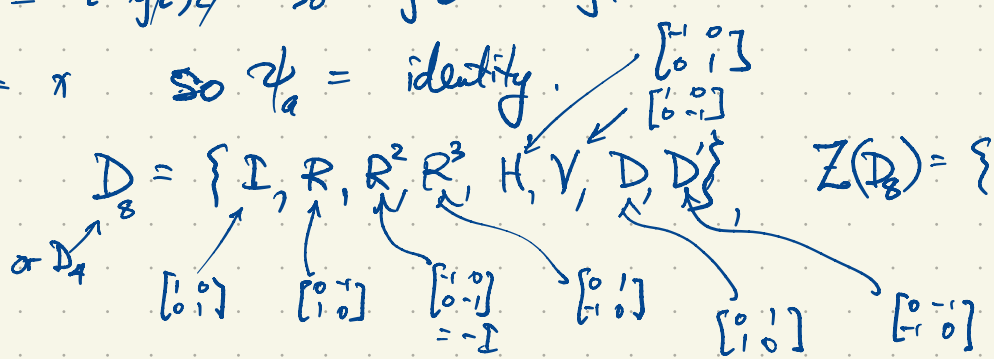 = x so ψₐ = identity.
[-1 0; 0 1]
[1 0; 0 -1]
D₈ = { I, R, R², R³, H, V, D, D′}, Z(D₈) = {
or D₄
[1 0; 0 1] [0 -1; 1 0] [-1 0; 0 -1] = -I [0 1; -1 0] [0 1; 1 0] [0 -1; -1 0]